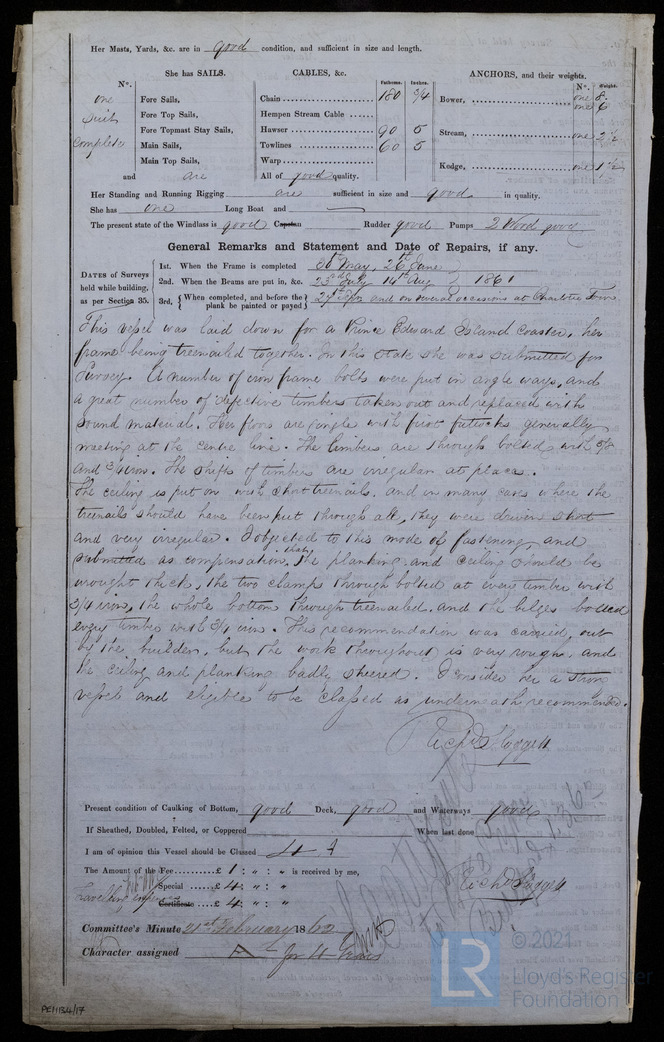 Her Masts, Yards, &c. are in good condition, and sufficient in size and length.
She has SAILS.
CABLES, &c.
Fathoms.
Inches.
ANCHORS, and their weights.
Nº.
Nº.
Weight.
one
Suit
Complete
Fore Sails,
Fore Top Sails,
Fore Topmast Stay Sails,
Main Sails,
Main Top Sails,
and are
Chain 180 3/4
Hempen Stream Cable
Hawser 90 5
Towlines 60 5
Warp
All of good quality.
Bower, one 8
one 6
Stream, one 2 1/2
Kedge, one 1 1/2
Her Standing and Running Rigging are sufficient in size and good in quality.
She has one Long Boat and
The present state of the Windlass is good Capstan Rudder good Pumps 2 Wood good
General Remarks and Statement and Date of Repairs, if any.
DATES of Surveys
held while building,
as per Section 35.
1st. When the Frame is completed 30th May, 26th June
2nd. When the Beams are put in, &c. 23rd July 14th Aug 1861
3rd. When completed, and before the
plank be painted or payed 27th Sepr and on several occasions at Charlotte Town
This vessel was laid down for a Prince Edward Island Coaster, her
frame being treenailed together. In this state she was submitted for
Survey. A number of iron frame bolts were put in angle ways, and
a great number of defective timbers taken out and replaced with
sound material. Her floors are single with first futtocks generally
meeting at the centre line. The timbers are through bolted with 5/8
and 3/4 iron. The shifts of timber are irregular at places.
The ceiling is put on with short treenails, and in many cases where the
treenails should have been put through all, they were driven short
and very irregular. I objected to this mode of fastening, and
submitted as compensation, that the planking and ceiling should be
wrought thick, the two clamps through bolted at every timber with
3/4 iron, the whole bottom through treenailed, and the bilges bolted
every timber with 3/4 iron. This recommendation was carried out
by the builder, but the work throughout is very rough, and
the ceiling and planking badly sheered. I consider her a strong
vessel and eligible to be classed as underneath recommended.
Present condition of Caulking of Bottom, good Deck, good and Waterways good
If Sheathed, Doubled, Felted, or Coppered When last done
I am of opinion this Vessel should be Classed 4 A
The Amount of the Fee £ 1 : " : " is received by me,
Special £ 4 : " : "
Travelling expenses Certificate £ 4 : " : "
Committee's Minute 21st February 1862
Character assigned A for 4 Years
PEI1B4/17
LR
© 2021
Lloyd's Register
Foundation